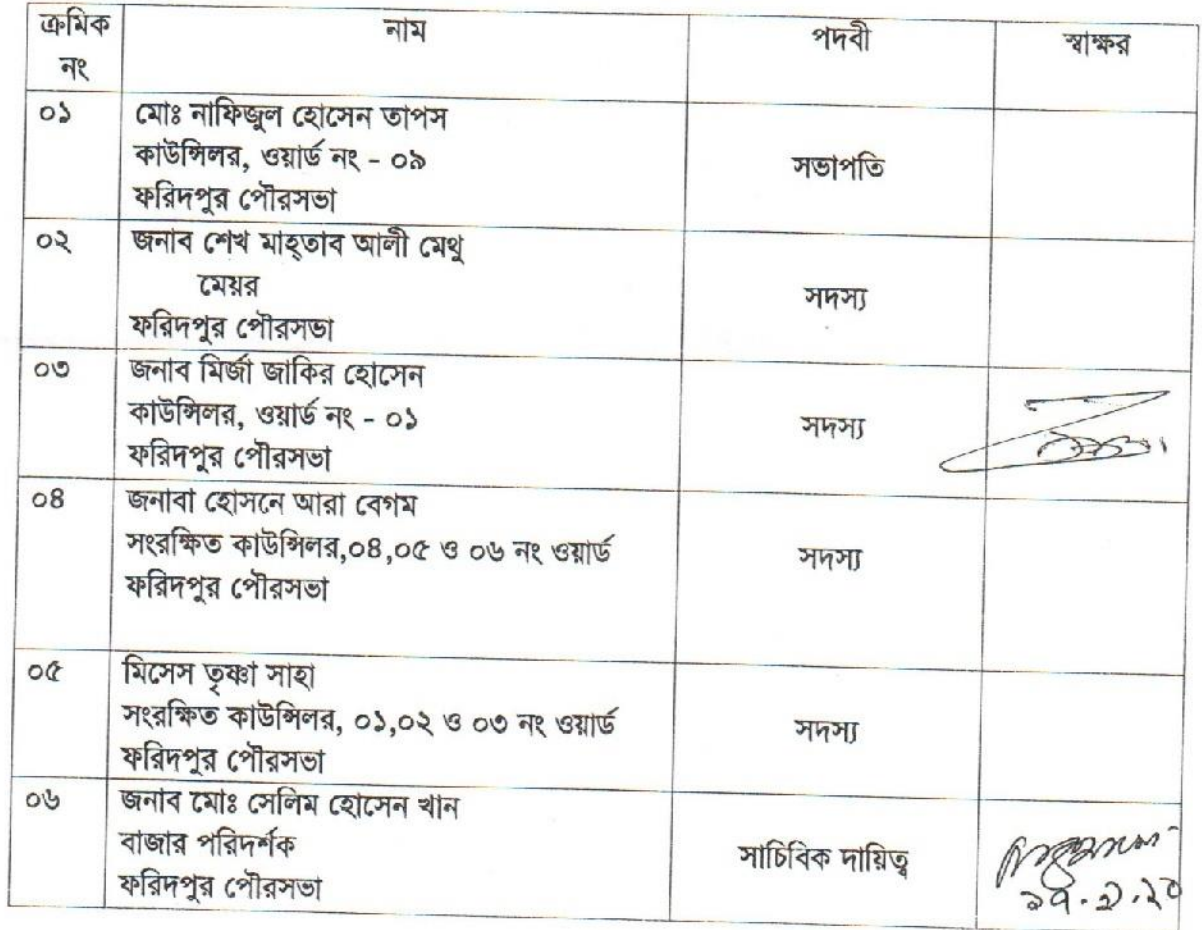 ক্রমিক নং নাম পদবী স্বাক্ষর
০১ মোঃ নাফিজুল হোসেন তাপস
কাউন্সিলর, ওয়ার্ড নং - ০৯
ফরিদপুর পৌরসভা
সভাপতি
০২ জনাব শেখ মাহ্‌তাব আলী মেথু
মেয়র
ফরিদপুর পৌরসভা
সদস্য
০৩ জনাব মির্জা জাকির হোসেন
কাউন্সিলর, ওয়ার্ড নং - ০১
ফরিদপুর পৌরসভা
সদস্য
০৪ জনাবা হোসনে আরা বেগম
সংরক্ষিত কাউন্সিলর,০৪,০৫ ও ০৬ নং ওয়ার্ড
ফরিদপুর পৌরসভা
সদস্য
০৫ মিসেস তৃষ্ণা সাহা
সংরক্ষিত কাউন্সিলর, ০১,০২ ও ০৩ নং ওয়ার্ড
ফরিদপুর পৌরসভা
সদস্য
০৬ জনাব মোঃ সেলিম হোসেন খান
বাজার পরিদর্শক
ফরিদপুর পৌরসভা
সাচিবিক দায়িত্ব